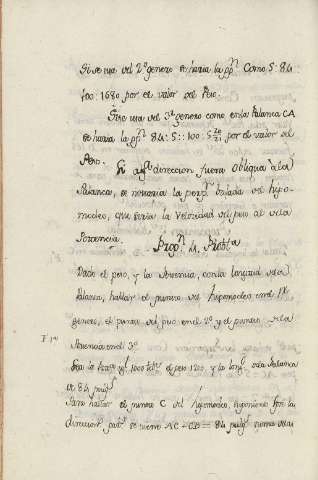 Si se usa del 2º genero se haria la ppⁿ Como 5: 84
100: 1680 por el valor del Peso.
Si se usa del 3º genero como en la Palanca CA
se haria la pⁿ 84: 5:: 100: 5 20/21 por el valor del
Peso. Si aqˡ direccion fuera obliqua à la
Palanca, se tomaria la perpʳ bajada del hipo-
mocleo, que seria la Velocidad del peso al de la
Potencia. Propⁿ Probla
Dado el peso, y la Potencia, con la longitud de la
Palanca, hallar el punto del hipomocleo en el 1º
genero, el punto del peso en el 2º y el punto de la
Potencia en el 3º
Sea la 1000 el peso 1200, y la longᵈ de la Palanca
de 84 pulgˢ
Para hallar el punto C del hipomocleo, supuesto
direccion se tiene AC + CB = 84 pulgˢ suma de las